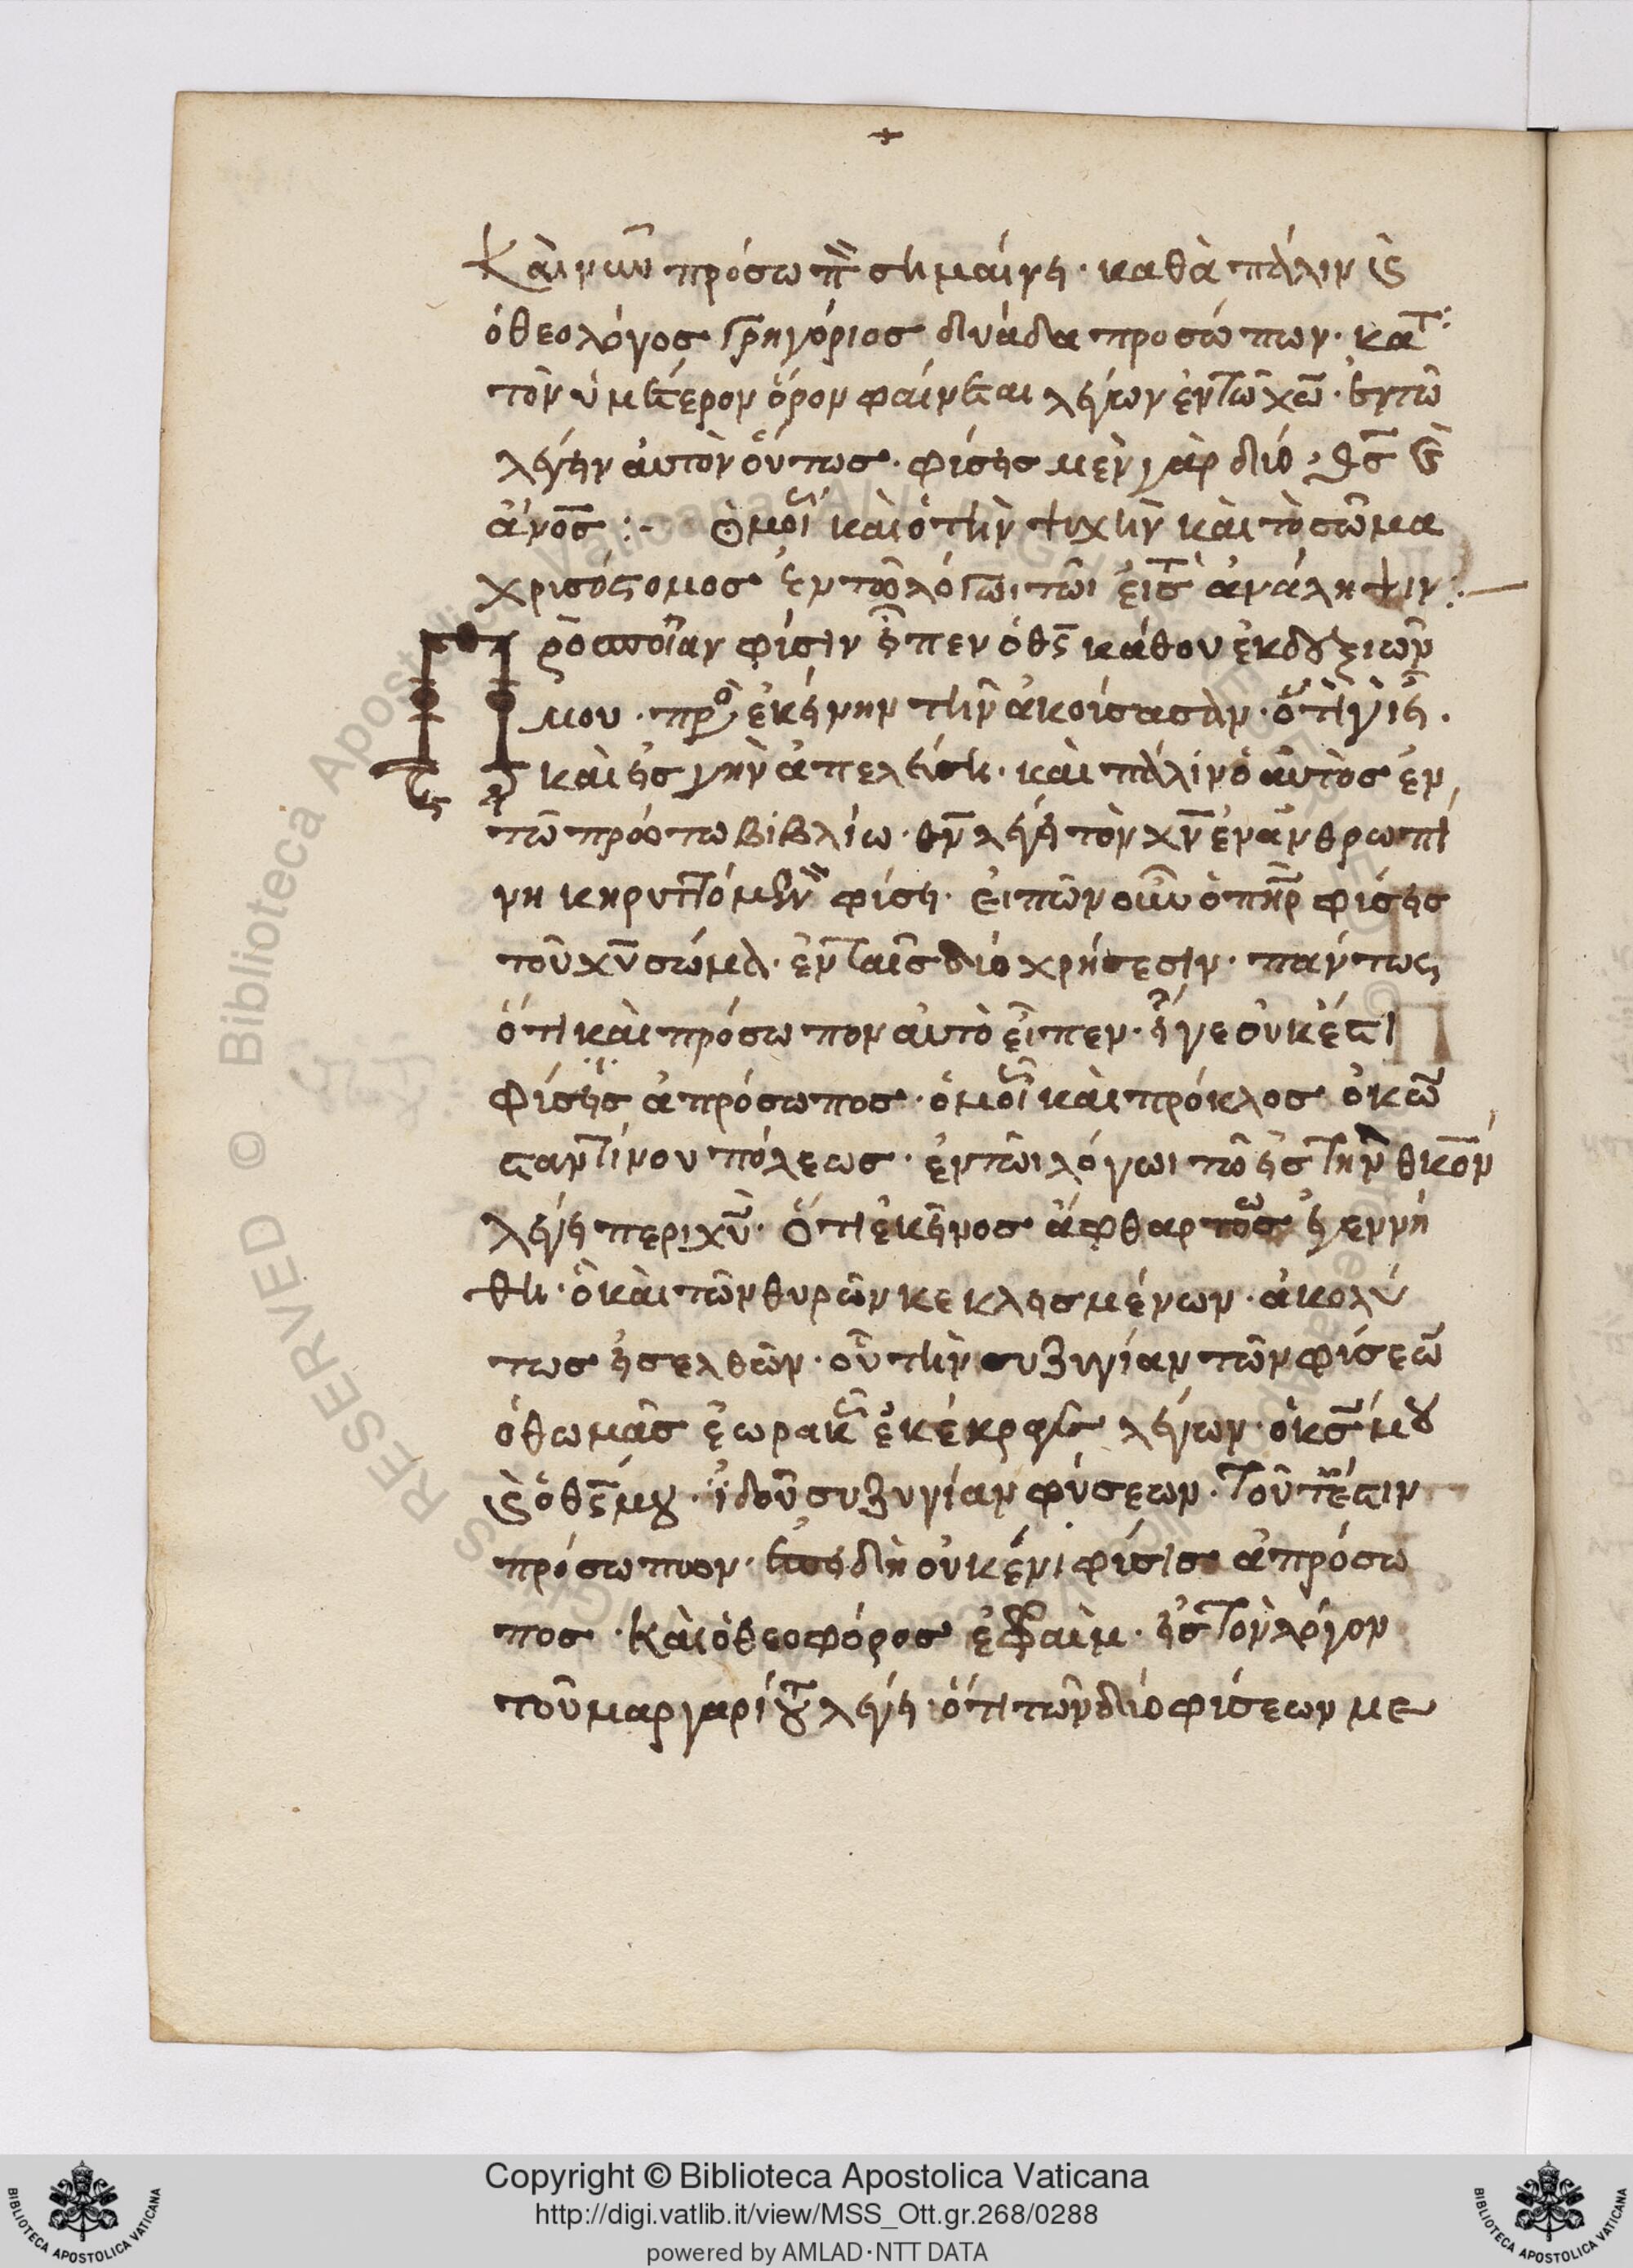 +
καὶ νῦν πρόσωπ σημαίνει · καθὰ πάλιν κ
ὁ θεολόγος γρηγόριος δυάδα προσώπων · κατ
τὸν ὑμέτερον ὅρον φαίνεται λέγων ἐν τῶ χω · ἐν τῶ
λέγειν αὐτὸν οὕτως · φίσεις μὲν γὰρ διό · θς κ
ἄνος :- Ὁμοί καὶ ὁ τὴν ψυχὴν καὶ τὸ σῶμα
χρισόστομος ἐν τῶ λόγωι τῶι εἰς τ ἀνάληψιν :
Πρὸς ποίαν φίσιν εἶπεν ὁ θς κάθου ἐκ δεξιῶν
μου · πρ ἐκείνην τὴν ἀκούσασαν · ὅτι γῆ εἶ ·
καὶ εἰς γὴν ἀπελεύσει · καὶ πάλιν ὁ αὐτὸς ἐν
τῶ πρώτω βιβλίω · θν λέγει τὸν χν ἐν ἀνθρωπί
νη κηρυττόμεν φίσει · εἰπὼν οὖν ὁ πηρ φίσεις
τοῦ χυ σώμα · ἐν ταῖς διὸ χρήσεσιν · πάντως
ὅτι καὶ πρόσωπον αὐτὸ εἶπεν · εἴγε οὐκ ἔστι
φίσεις ἀπρόσωπος · ὁμοί καὶ πρόκλος ὁ κων
σταντίνου πόλεως · ἐν τῶι λόγωι τῶ εἰς τὴν θκον
λέγει περι χυ · Ὅτι ἐκεῖνος ἀφθάρτως ἐγεννή
θη · ὁ καὶ τῶν θυρῶν κεκλεισμένων · ἀκολύ
τως εἰσελθὼν · οὗ τὴν συζυγίαν τῶν φίσεω
ὁ θωμᾶς ἑωρακ ἐκέκραγε λέγων · ὁ κς μου
κ ὁ θς μου · ἰδοῦ συζυγίαν φύσεων · τοῦτέστιν
πρόσωπον · δὴ οὐκ ἔνι φίσις ἀπρόσω
πος · καὶ ὁ θεοφόρος ἐφραὶμ · εἰς τὸν λόγον
τοῦ μαργαρίτου λέγει · ὅτι τῶν διὸ φίσεων με
Copyright © Biblioteca Apostolica Vaticana
http://digi.vatlib.it/view/MSS_Ott.gr.268/0288
powered by AMLAD·NTT DATA